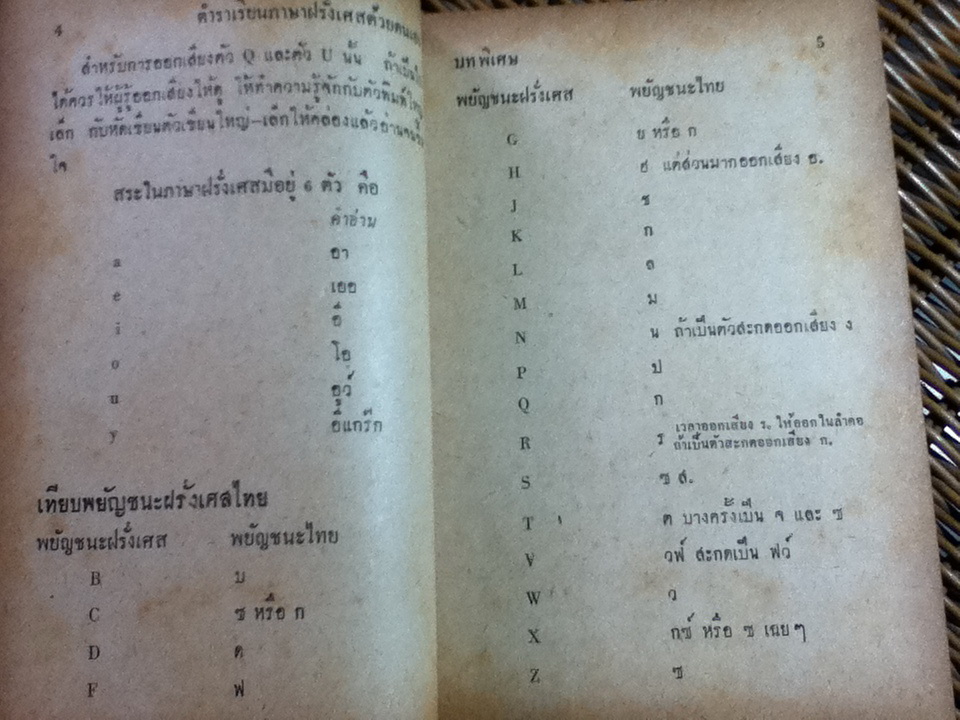 4 ตำราเรียนภาษาฝรั่งเศสด้วยตนเอง
สำหรับการออกเสียงตัว Q และตัว U นั้น ถ้าเป็นไป
ได้ควรให้ผู้รู้ออกเสียงให้ดู ให้ทำความรู้จักกับตัวพิมพ์ใหญ่
เล็ก กับหัดเขียนตัวเขียนใหญ่–เล็กให้คล่องแล้วอ่านจนขึ้น
ใจ
สระในภาษาฝรั่งเศสมีอยู่ 6 ตัว คือ
คำอ่าน
a อา
e เออ
i อี
o โอ
u อูว์
y อีแกร๊ก
เทียบพยัญชนะฝรั่งเศสไทย
พยัญชนะฝรั่งเศส พยัญชนะไทย
B บ
C ซ หรือ ก
D ด
F ฟ
5
บทพิเศษ
พยัญชนะฝรั่งเศส พยัญชนะไทย
G ย หรือ ก
H ฮ แต่ส่วนมากออกเสียง อ.
J ช
K ก
L ล
M ม
N น ถ้าเป็นตัวสะกดออกเสียง ง
P ป
Q ก
R ร เวลาออกเสียง ร. ให้ออกในลำคอ
ถ้าเป็นตัวสะกดออกเสียง ก.
S ซ ส.
T ต บางครั้งเป็น จ และ ซ
V วฟ์ สะกดเป็น ฟว์
W ว
X กซ์ หรือ ซ เฉยๆ
Z ซ